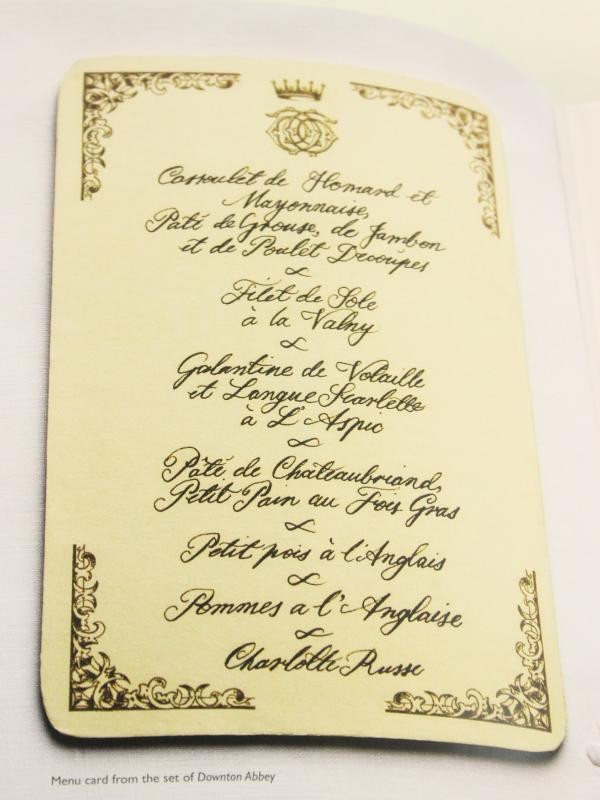 Cassoulet de Homard et
Mayonnaise,
Paté de Grouse, de Jambon
et de Poulet Decoupes
Filet de Sole
à la Valny
Galantine de Volaille
et Langue Scarlette
à L'Aspic
Pâté de Châteaubriand,
Petit Pain au Fois Gras
Petit pois à l'Anglais
Pommes a l'Anglaise
Charlotte Russe
Menu card from the set of Downton Abbey